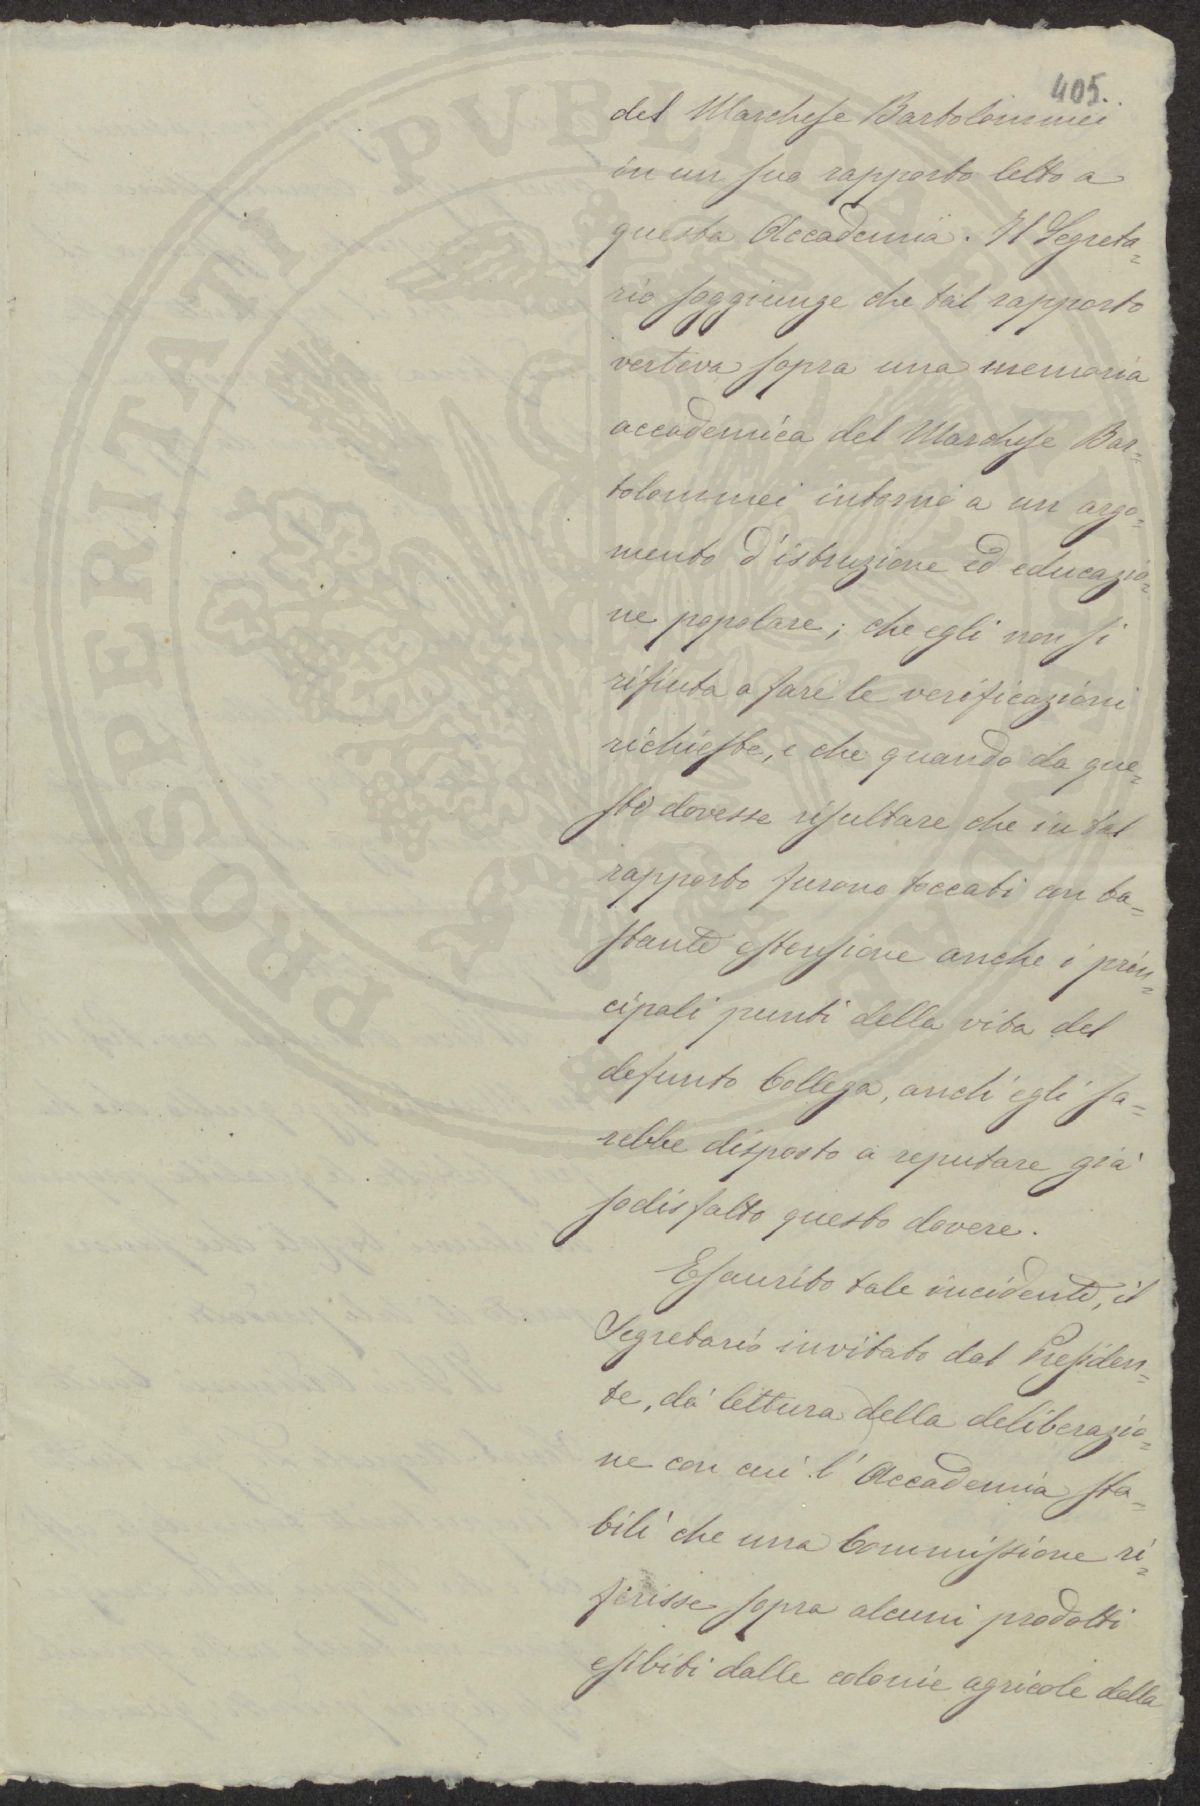 405.
del Marchese Bartolommei
in un suo rapporto letto a
questa Accademia. Il Segreta=
rio soggiunge che tal rapporto
verteva sopra una memoria
accademica del Marchese Bar=
tolommei intorno a un argo=
mento d'istruzione ed educazio=
ne popolare; che egli non si
rifiuta a fare le verificazioni
richieste, e che quando da que=
sto dovesse risultare che in tal
rapporto furono toccati con ba=
stante estensione anche i prin=
cipali punti della vita del
defunto Collega, anch'egli sa=
rebbe disposto a reputare già
sodisfatto questo dovere.
Esaurito tale incidente, il
Segretario invitato dal Presiden=
te, dà lettura della deliberazio=
ne con cui l'Accademia sta=
bilì che una Commissione ri=
ferisse sopra alcuni prodotti
esibiti dalle colonie agricole della
PROSPERITATI PVBLICAE AVGENDAE